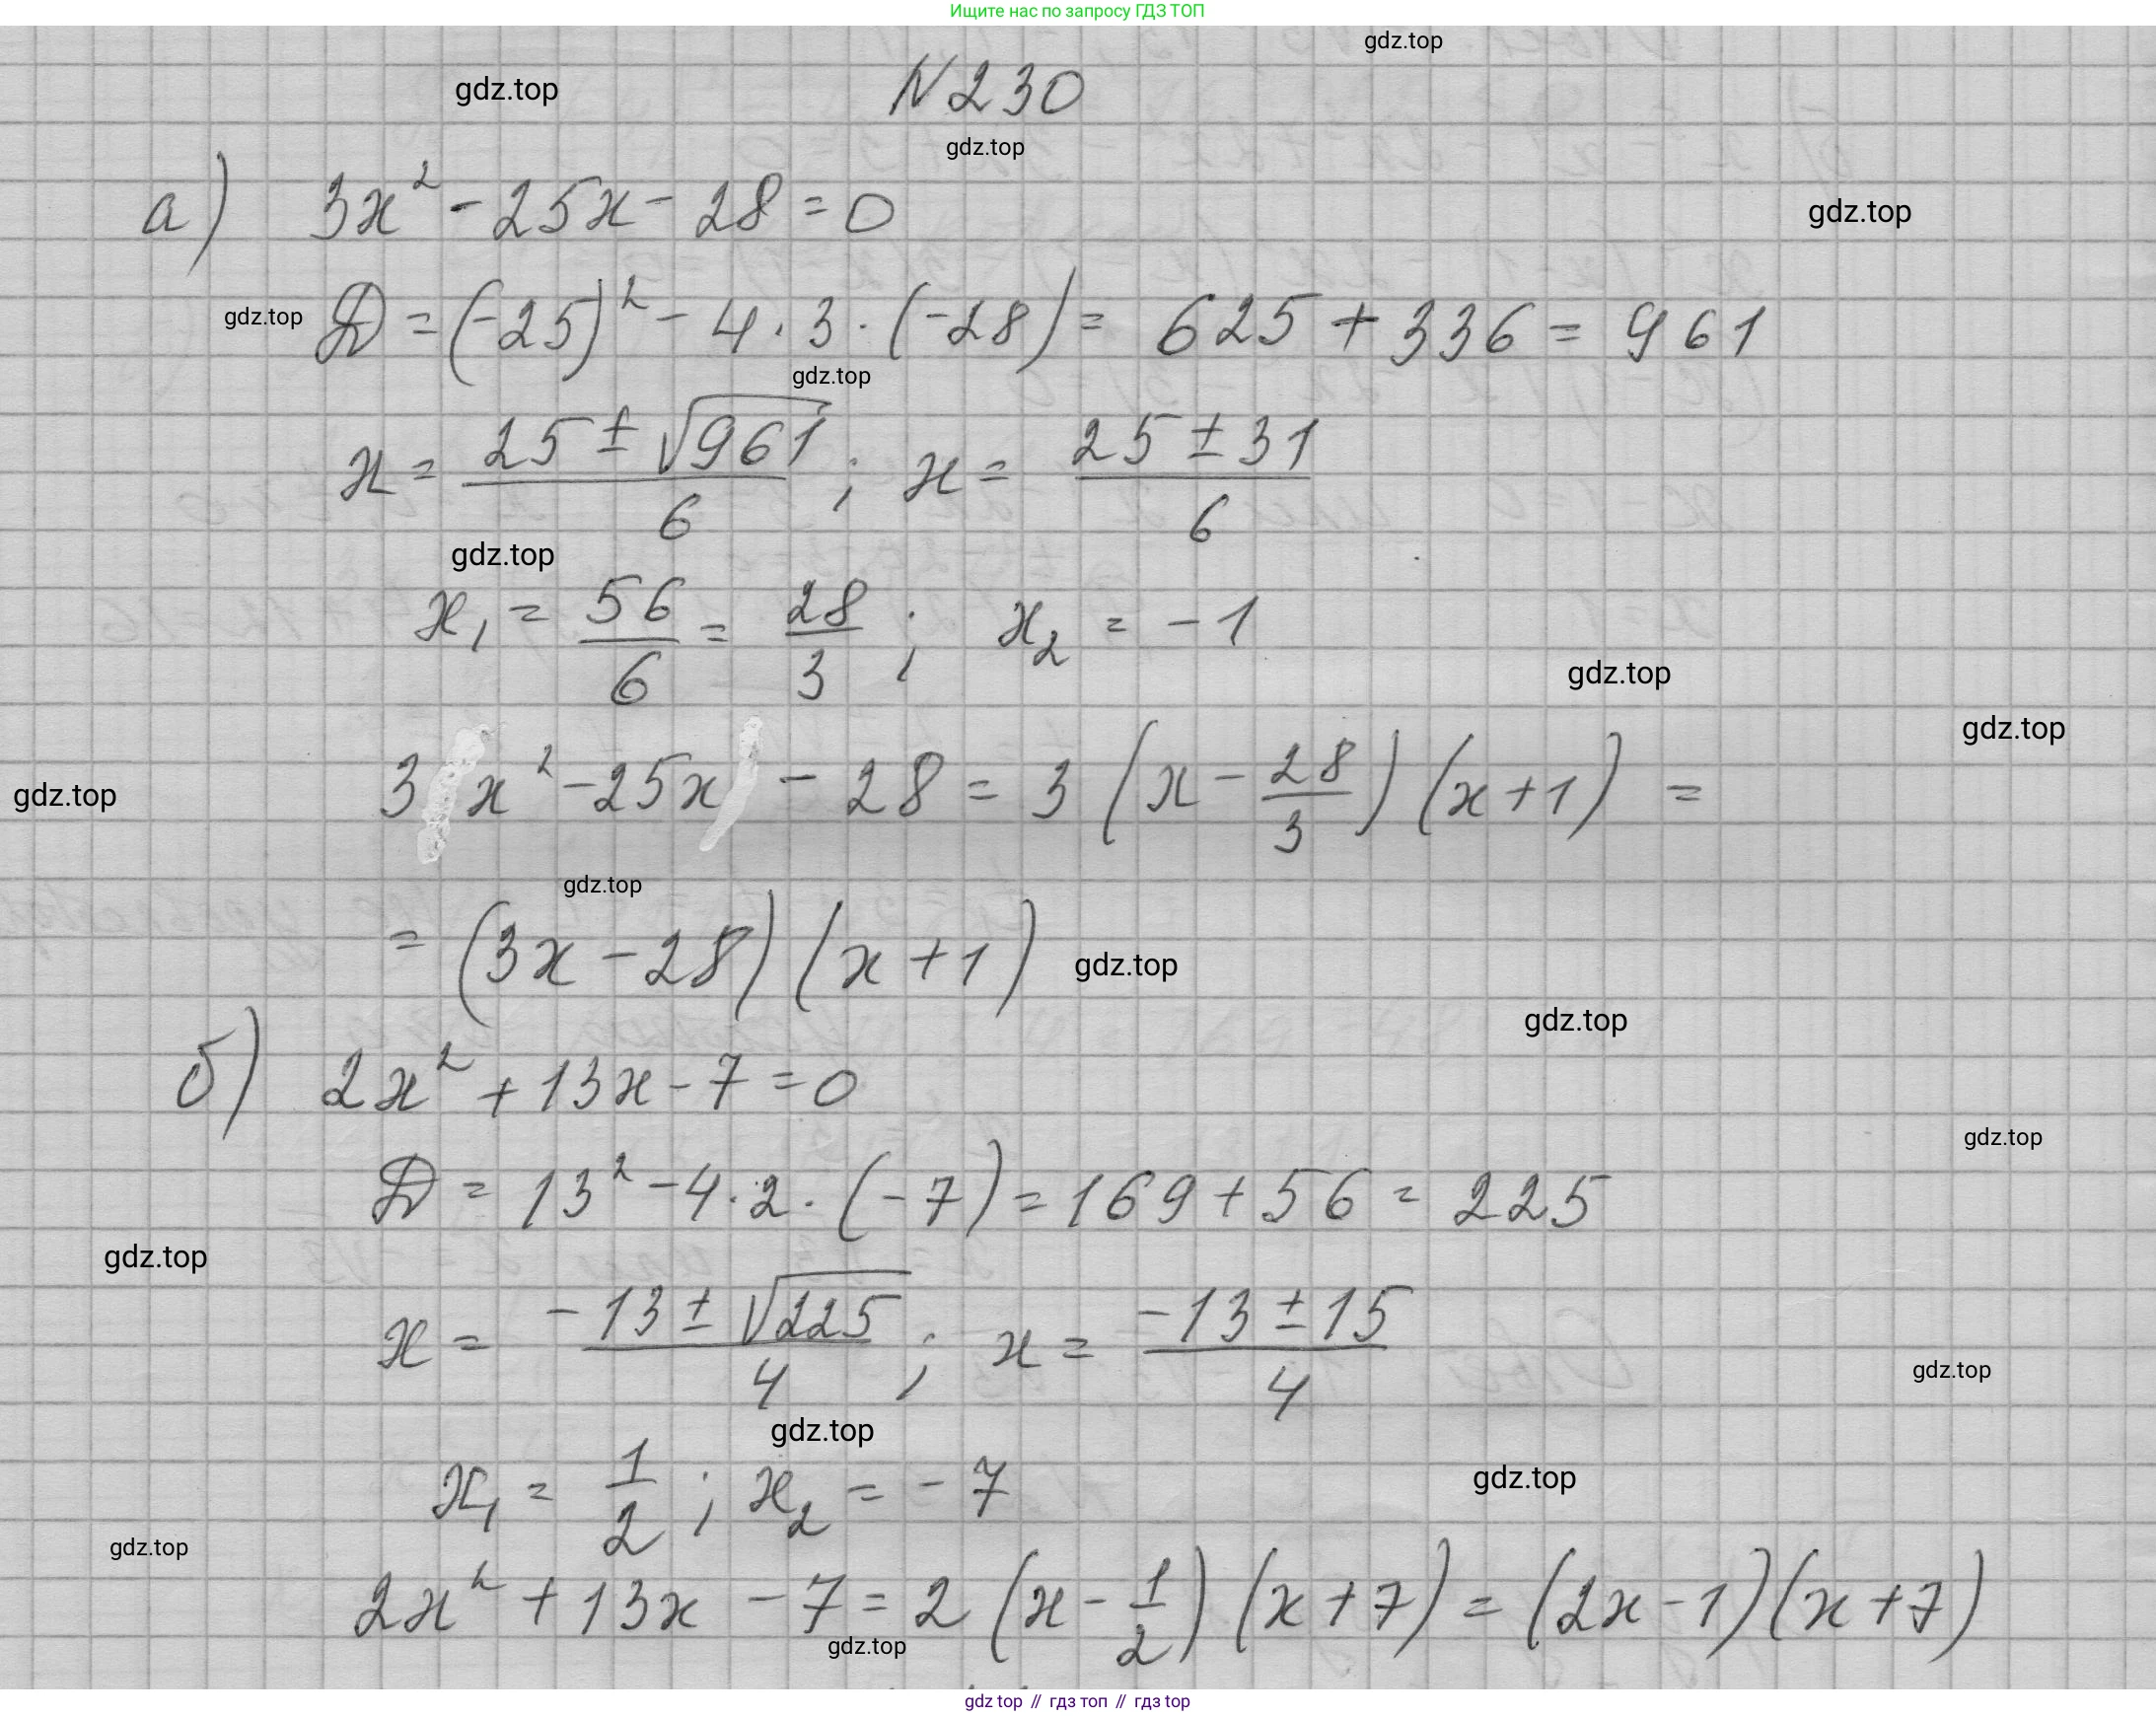 Ищите нас по запросу ГДЗ ТОП
gdz.top
gdz.top
N 230
gdz.top
а) 3x² - 25x - 28 = 0
gdz.top
gdz.top
Д = (-25)² - 4 · 3 · (-28) = 625 + 336 = 961
gdz.top
x = (25 ± √961)/6 ; x = (25 ± 31)/6
gdz.top
x₁ = 56/6 = 28/3 ; x₂ = -1
gdz.top
gdz.top
gdz.top
3 x² - 25x - 28 = 3 (x - 28/3) (x + 1) =
gdz.top
= (3x - 28) (x + 1)
gdz.top
gdz.top
б) 2x² + 13x - 7 = 0
gdz.top
Д = 13² - 4 · 2 · (-7) = 169 + 56 = 225
gdz.top
x = (-13 ± √225)/4 ; x = (-13 ± 15)/4
gdz.top
gdz.top
x₁ = 1/2 ; x₂ = -7
gdz.top
gdz.top
2x² + 13x - 7 = 2 (x - 1/2) (x + 7) = (2x - 1) (x + 7)
gdz.top
gdz top // гдз топ // gdz top